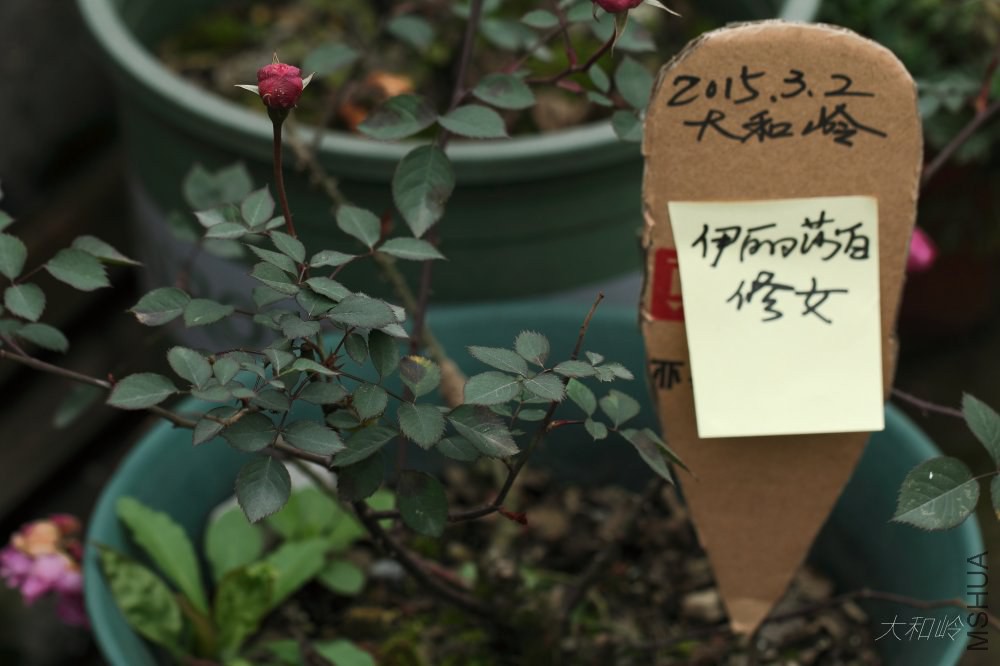 2015.3.2
大和岭
伊丽莎白
修女
大和岭
MSHUA